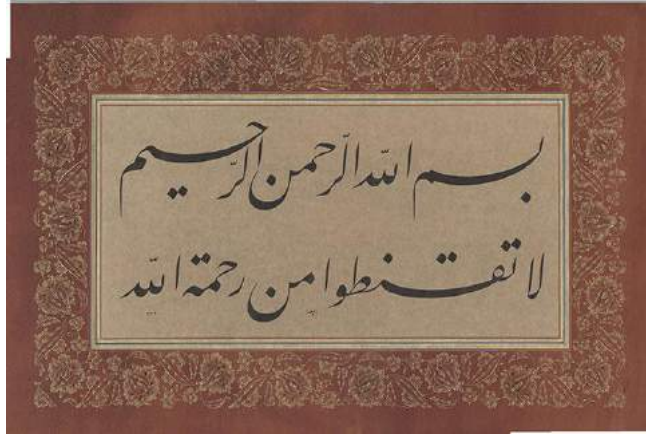 بسم الله الرّحمن الرّحيم
لا تقنطوا من رحمة الله